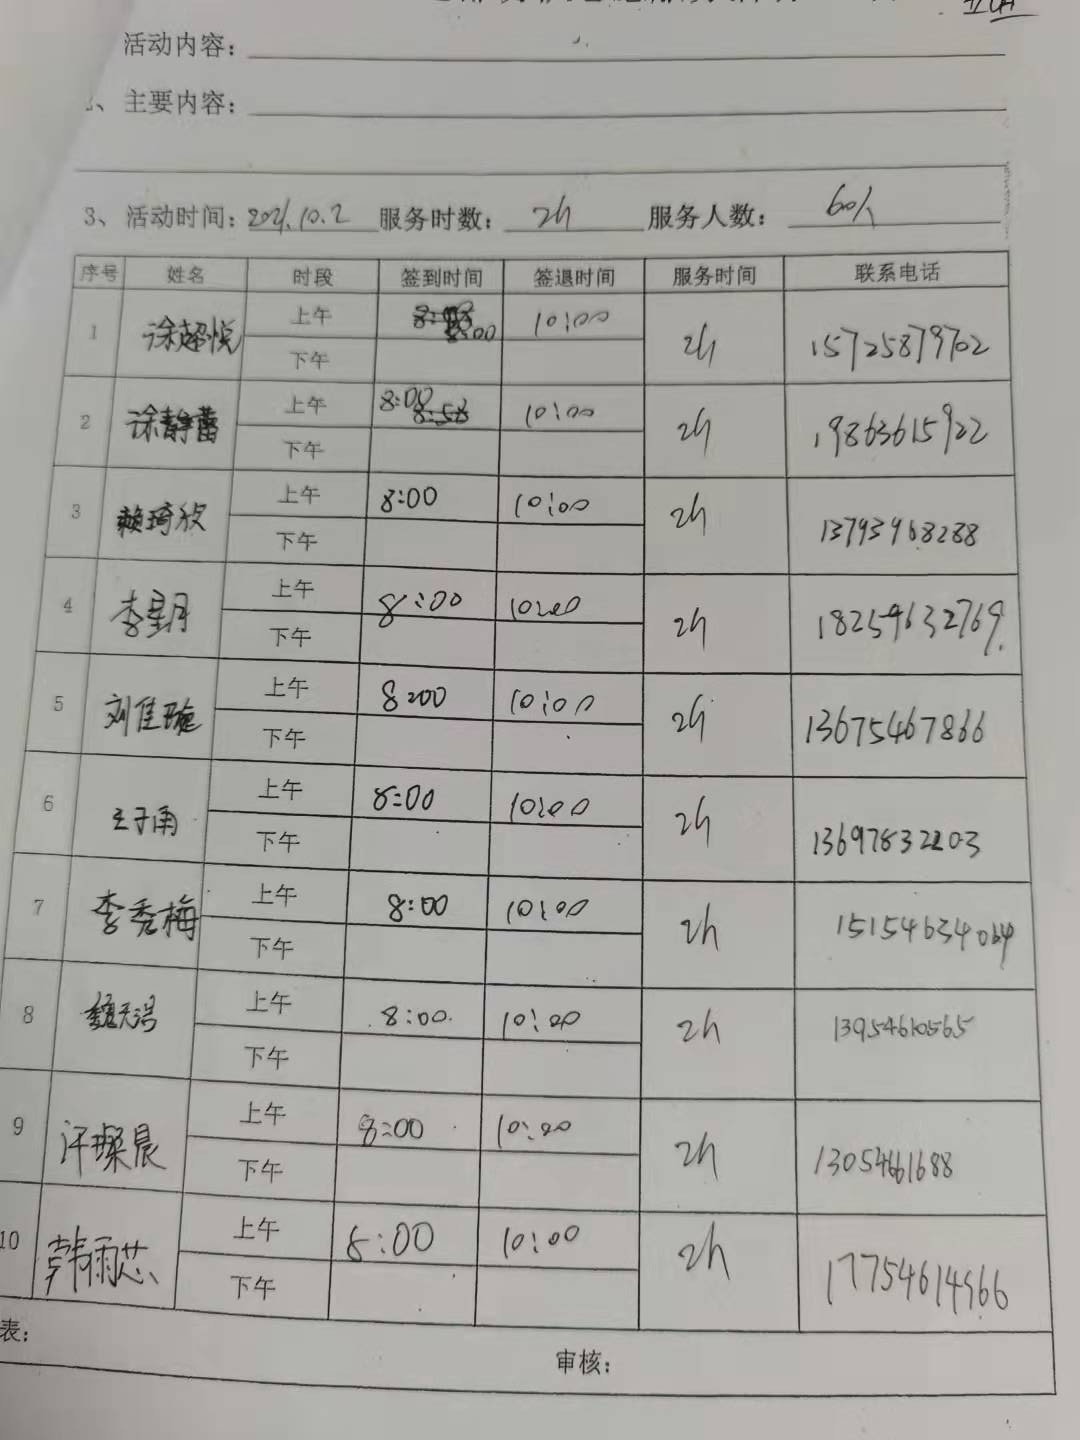 活动内容：
、主要内容：
3、活动时间：2021.10.2 服务时数：2h 服务人数：60人
序号 姓名 时段 签到时间 签退时间 服务时间 联系电话
1 徐超悦 上午 8:00 10:00 2h 15725879702
下午
2 徐静蕾 上午 8:00 10:00 2h 19863615922
下午
3 赖琦欣 上午 8:00 10:00 2h 13793968288
下午
4 李星月 上午 8:00 10:00 2h 18259632769
下午
5 刘佳璇 上午 8:00 10:00 2h 13675467866
下午
6 上午 8:00 10:00 2h 13697832203
下午
7 李秀梅 上午 8:00 10:00 2h 15154634064
下午
8 上午 8:00 10:00 2h 13954610565
下午
9 许璨晨 上午 8:00 10:00 2h 13054661688
下午
10 韩雨芯 上午 8:00 10:00 2h 17754614566
下午
表：
审核：